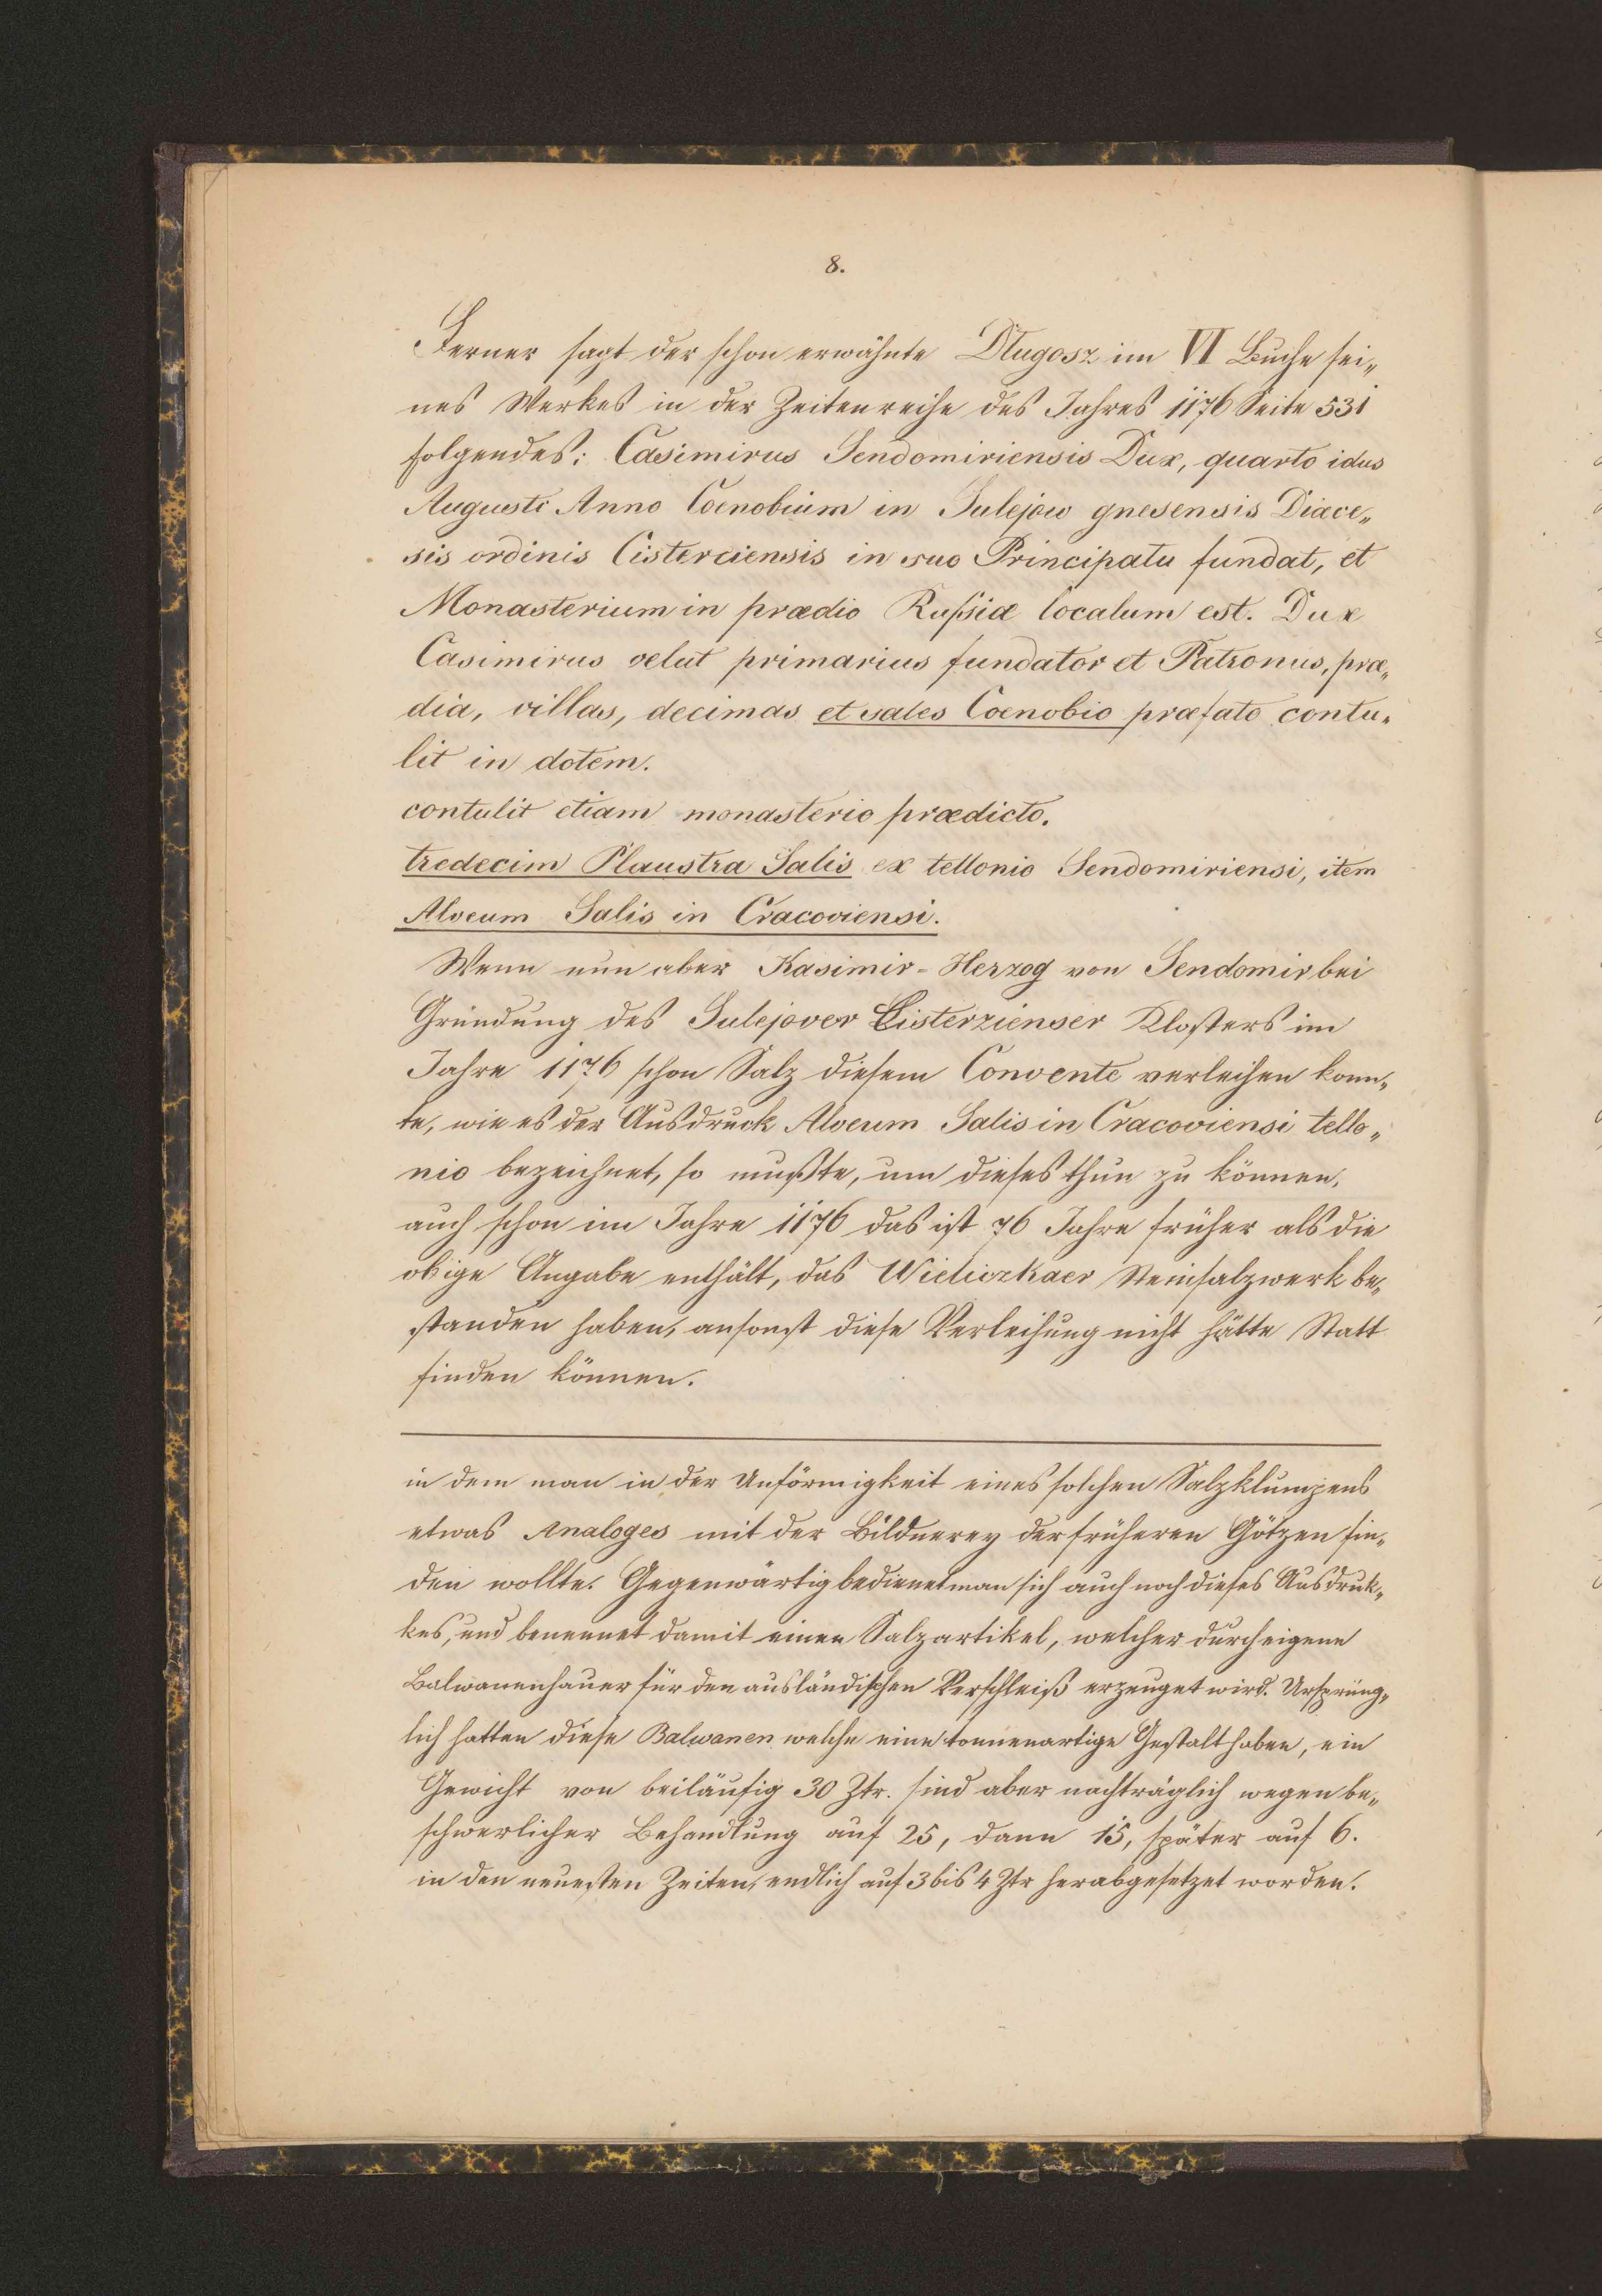 8.
Ferner sagt der schon erwähnte Długosz im VI Buche sei„
nes Werkes in der Zeitenreihe des Jahres 1176 Seite 531
folgendes: Casimirus Sendomiriensis Dux, quarto idus
Augusti Anno Coenobium in Sulejow gnesensis Diœce„
sis ordinis Cisterciensis in suo Principatu fundat, et
Monasterium in prædio Rußiæ localum est. Dux
Casimirus velut primarius fundator et Patronus, præ„
dia, villas, decimas et sales Coenobio præfato contu„
lit in dotem.
contulit etiam monasterio prædicto.
tredecim Plaustra Salis ex tellonio Sendomiriensi, item
Alveum Salis in Cracoviensi.
Wenn nun aber Kasimir-Herzog von Sendomir bei
Gründung des Sulejover Cisterzienser Klosters im
Jahre 1176 schon Salz diesem Convente verleihen konn„
te, wie es der Ausdruck Alveum Salis in Cracoviensi tello„
nio bezeichnet, so mußte, um dieses thun zu können,
auch schon im Jahre 1176 das ist 76 Jahre früher als die
obige Angabe enthält, das Wieliczkaer Steinsalzwerk be„
standen haben, ansonst diese Verleihung nicht hätte Statt
finden können.
in dem man in der Unförmigkeit eines solchen Salzklumpens
etwas Analoges mit der Bildnerey der früheren Götzen fin„
den wollte. Gegenwärtig bedienet man sich auch noch dieses Ausdruk„
kes, und benennet damit einen Salzartikel, welcher durch eigene
Balwanenhauer für den ausländischen Verschleiß erzeuget wird. Ursprüng„
lich hatten diese Balwanen welche eine tonnenartige Gestalt haben, ein
Gewicht von beiläufig 30 Ztr. sind aber nachträglich wegen be„
schwerlicher Behandlung auf 25, dann 15, später auf 6.
in den neuesten Zeiten, endlich auf 3 bis 4 Ztr herabgesetzet worden.